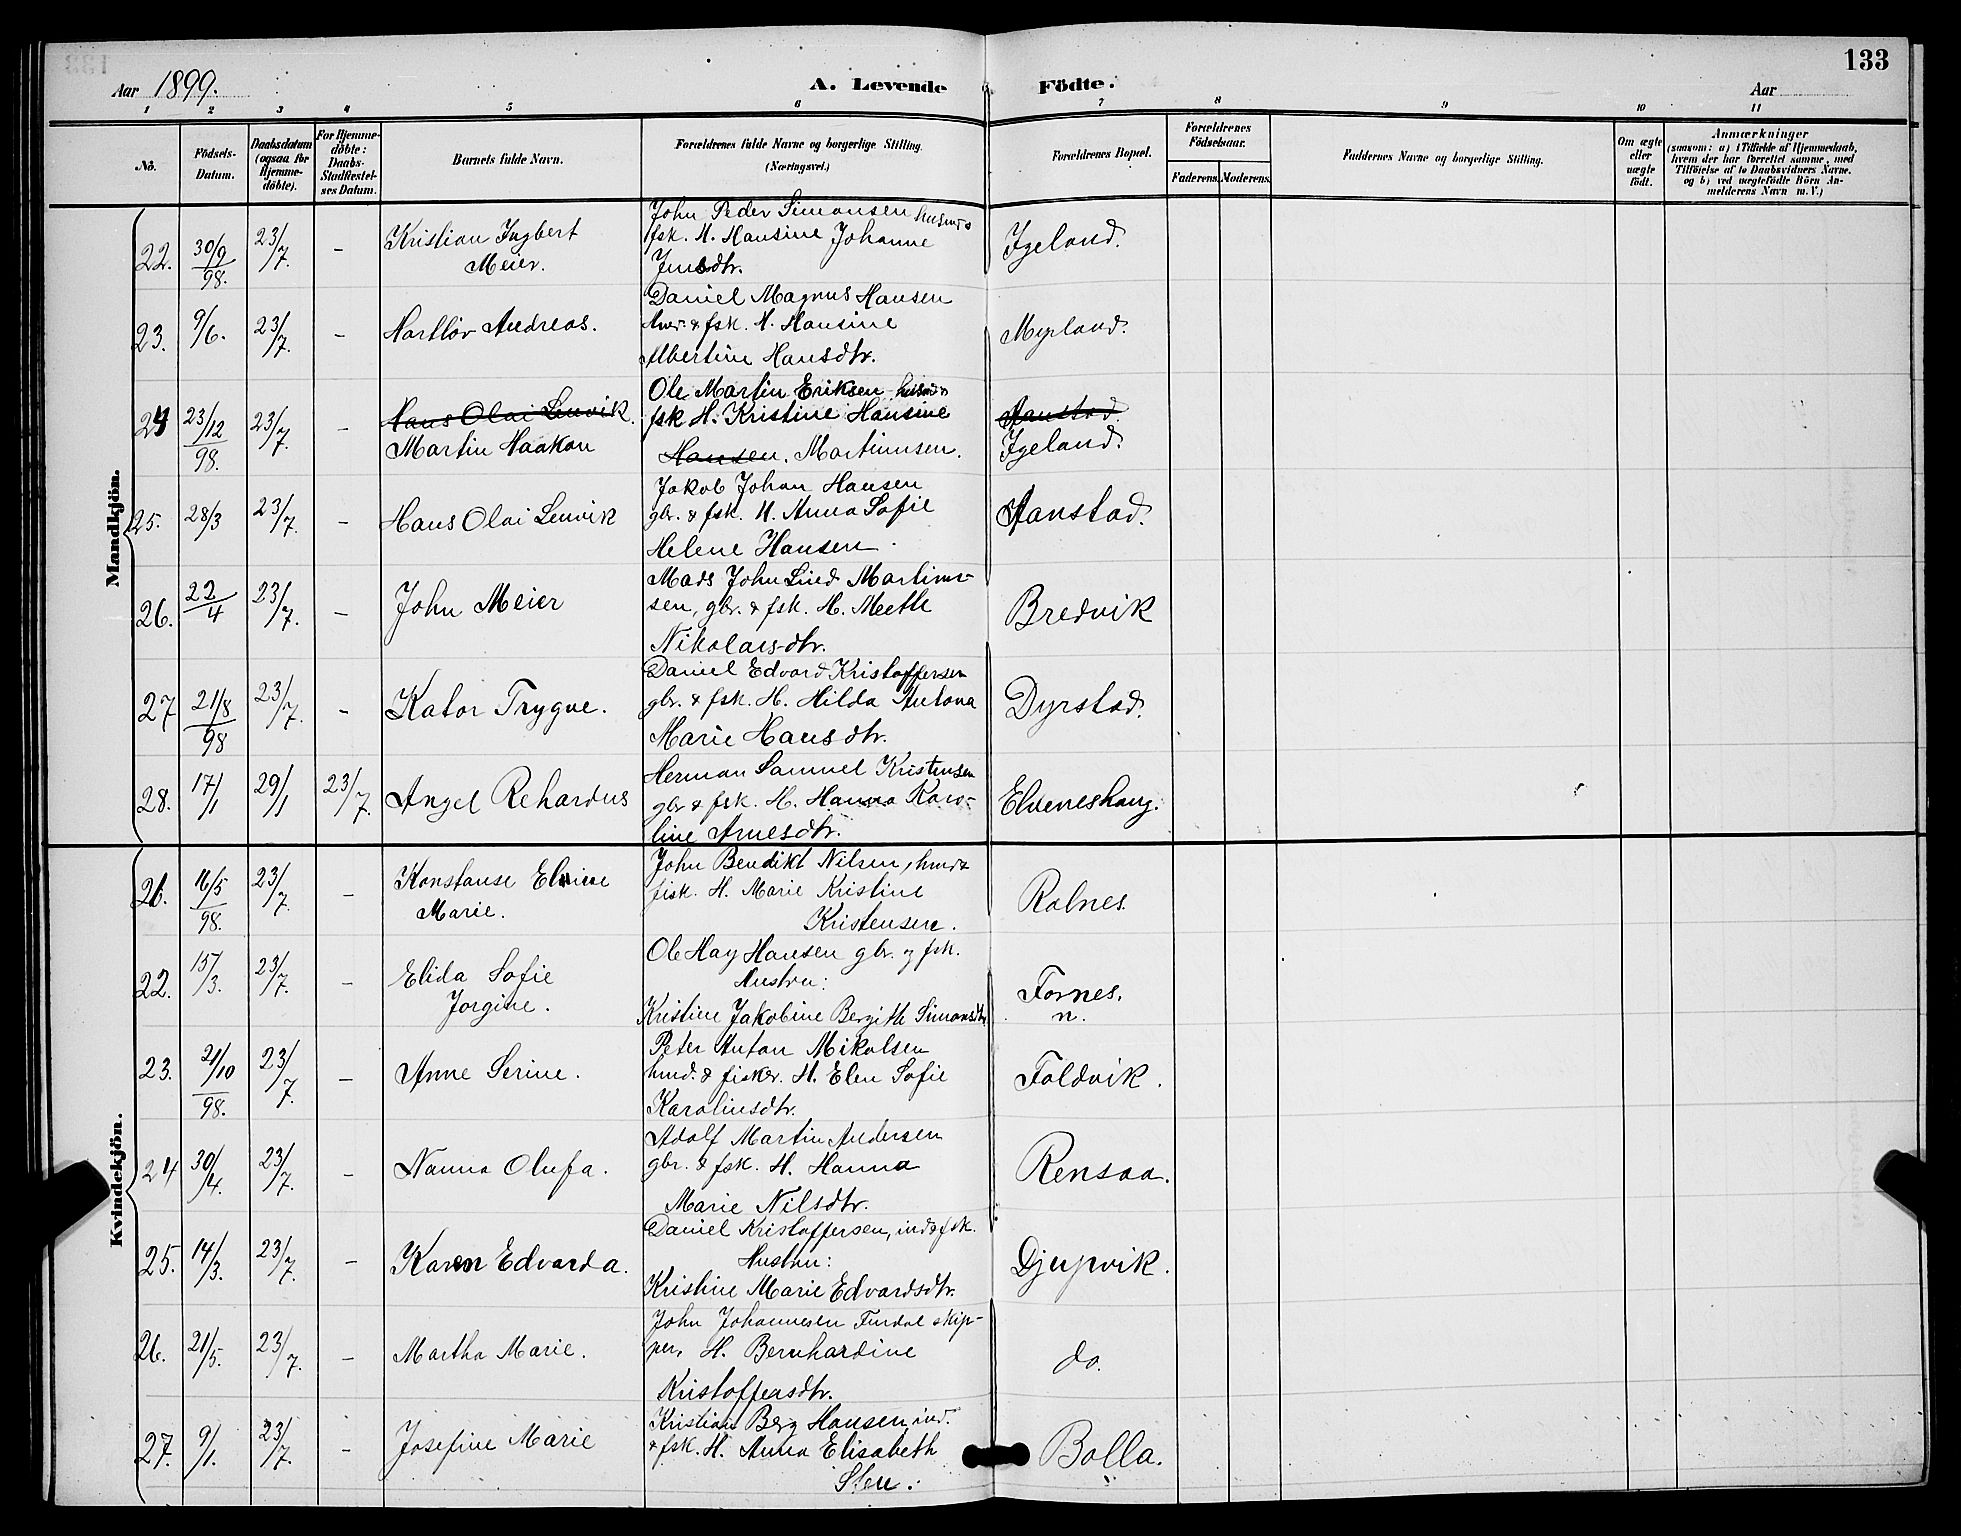 133
Aar 1899.
A. Levende Födte.
Aar
1 2 3 4 5 6 7 8 9 10 11
No.
Födsels-
Datum.
Daabsdatum
(ogsaa for
Hjemme-
döbte).
For Hjemme-
döbte:
Daabs-
Stadfæstel-
ses Datum.
Barnets fulde Navn.
Forældrenes fulde Navne og borgerlige Stilling.
(Næringsvei.)
Forældrenes Bopæl.
Forældrenes
Födselsaar.
Faderens. Moderens.
Faddernes Navne og borgerlige Stilling.
Om ægte
eller
uægte
födt.
Anmærkninger
(saasom: a) i Tilfælde af Hjemmedaab,
hvem der har forrettet samme, med
Tilföielse af to Daabsvidners Navne.
og b) ved uægtefödte Börn An-
melderens Navn m. V.)
Mandkjön.
22. 30/9 98. 23/7. - Kristian Ingbert
Meier.
John Peder Simonsen husmd
fsk. H. Hansine Johanne
Jensdtr.
Igeland.
23. 9/6. 23/7. - Hartlöv Andreas.
Daniel Magnus Hansen
& fsk. H. Hansine
Albertine Hansdtr.
Myrland.
24 23/12 98. 23/7. - Hans Olai Lenvik.
Martin Haakon
Ole Martin Eriksen
fsk H. Kristine Hansine
Hansen. Martinusen.
Aanstad.
Igeland.
25. 28/3 23/7. - Hans Olai Lenvik
Jakob Johan Hansen
gbr. & fsk. H. Anna Sofie
Helene Hansen.
Aanstad.
26. 22/4 23/7. - John Meier
Mads John Lind Martinu-
sen, gbr. & fsk. H. Meethe
Nikolaisdtr.
Bredvik
27 21/8 98 23/7. - Kator Trygve.
Daniel Edvard Kristoffersen
gbr. & fsk. H. Hilda Antona
Marie Hansdtr.
Dyrstad.
28. 17/1 29/1 23/7. Angel Rehardus
Herman Samuel Kristensen
gbr & fsk. H. Hanna Karo-
line Arnesdtr.
Elveneshaug.
Kvindekjön.
21. 16/5 98. 23/7. - Konstanse Elviene
Marie.
John Bendikt Nilsen, husmd
fisk. H. Marie Kristine
Kristensen.
Rolnes.
22. 15/3. 23/7. - Elida Sofie
Jorgine.
Ole Hay Hansen gbr. og fsk.
Hustru:
Kristine Jakobine Bergithe Simonsdtr
Fornes.
n.
23. 21/10 98. 23/7. - Anne Serine.
Peter Anton Mikalsen
hmd. & fisker. H. Elen Sofie
Karolinsdtr.
Foldvik.
24 30/4. 23/7. - Nanna Olufa.
Adolf Martin Andersen
gbr. & fsk. H. Hanna
Marie Nilsdtr.
Rensaa.
25. 14/3. 23/7. - Karen Edvarda.
Daniel Kristoffersen, ind & fsk.
Hustru:
Kristine Marie Edvardsdtr.
Djupvik.
26. 21/5. 23/7. - Martha Marie.
John Johannesen Furdal skip-
per, H. Bernhardine
Kristoffersdtr.
do.
27. 9/1. 23/7. - Josefine Marie
Kristian Berg Hansen, ind.
& fsk. H. Anna Elisabeth
Sten.
Bolla.